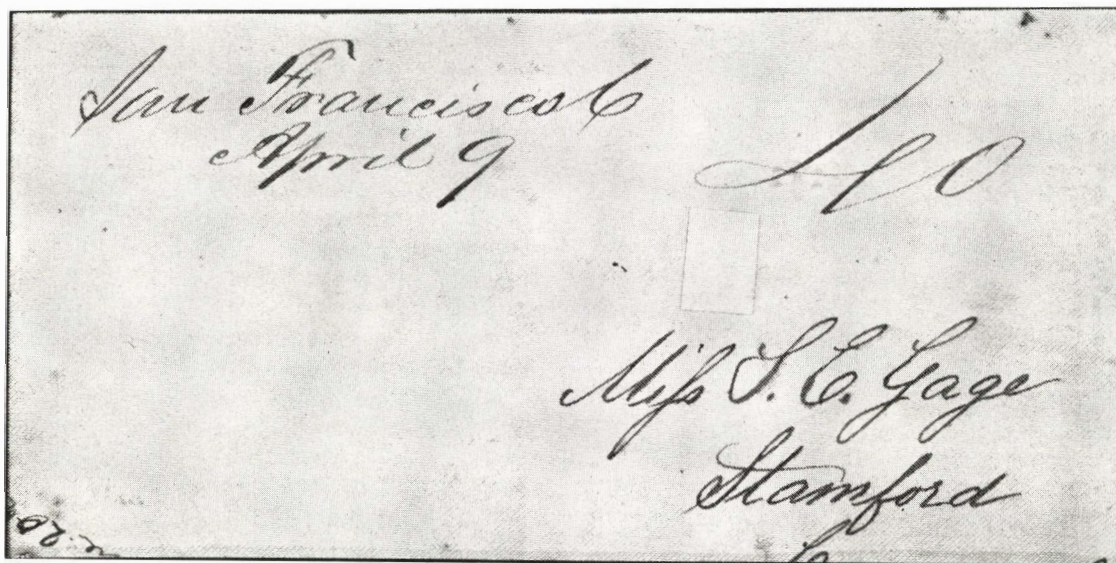 San Francisco C
April 9
40
Miss S. E. Gage
Stamford